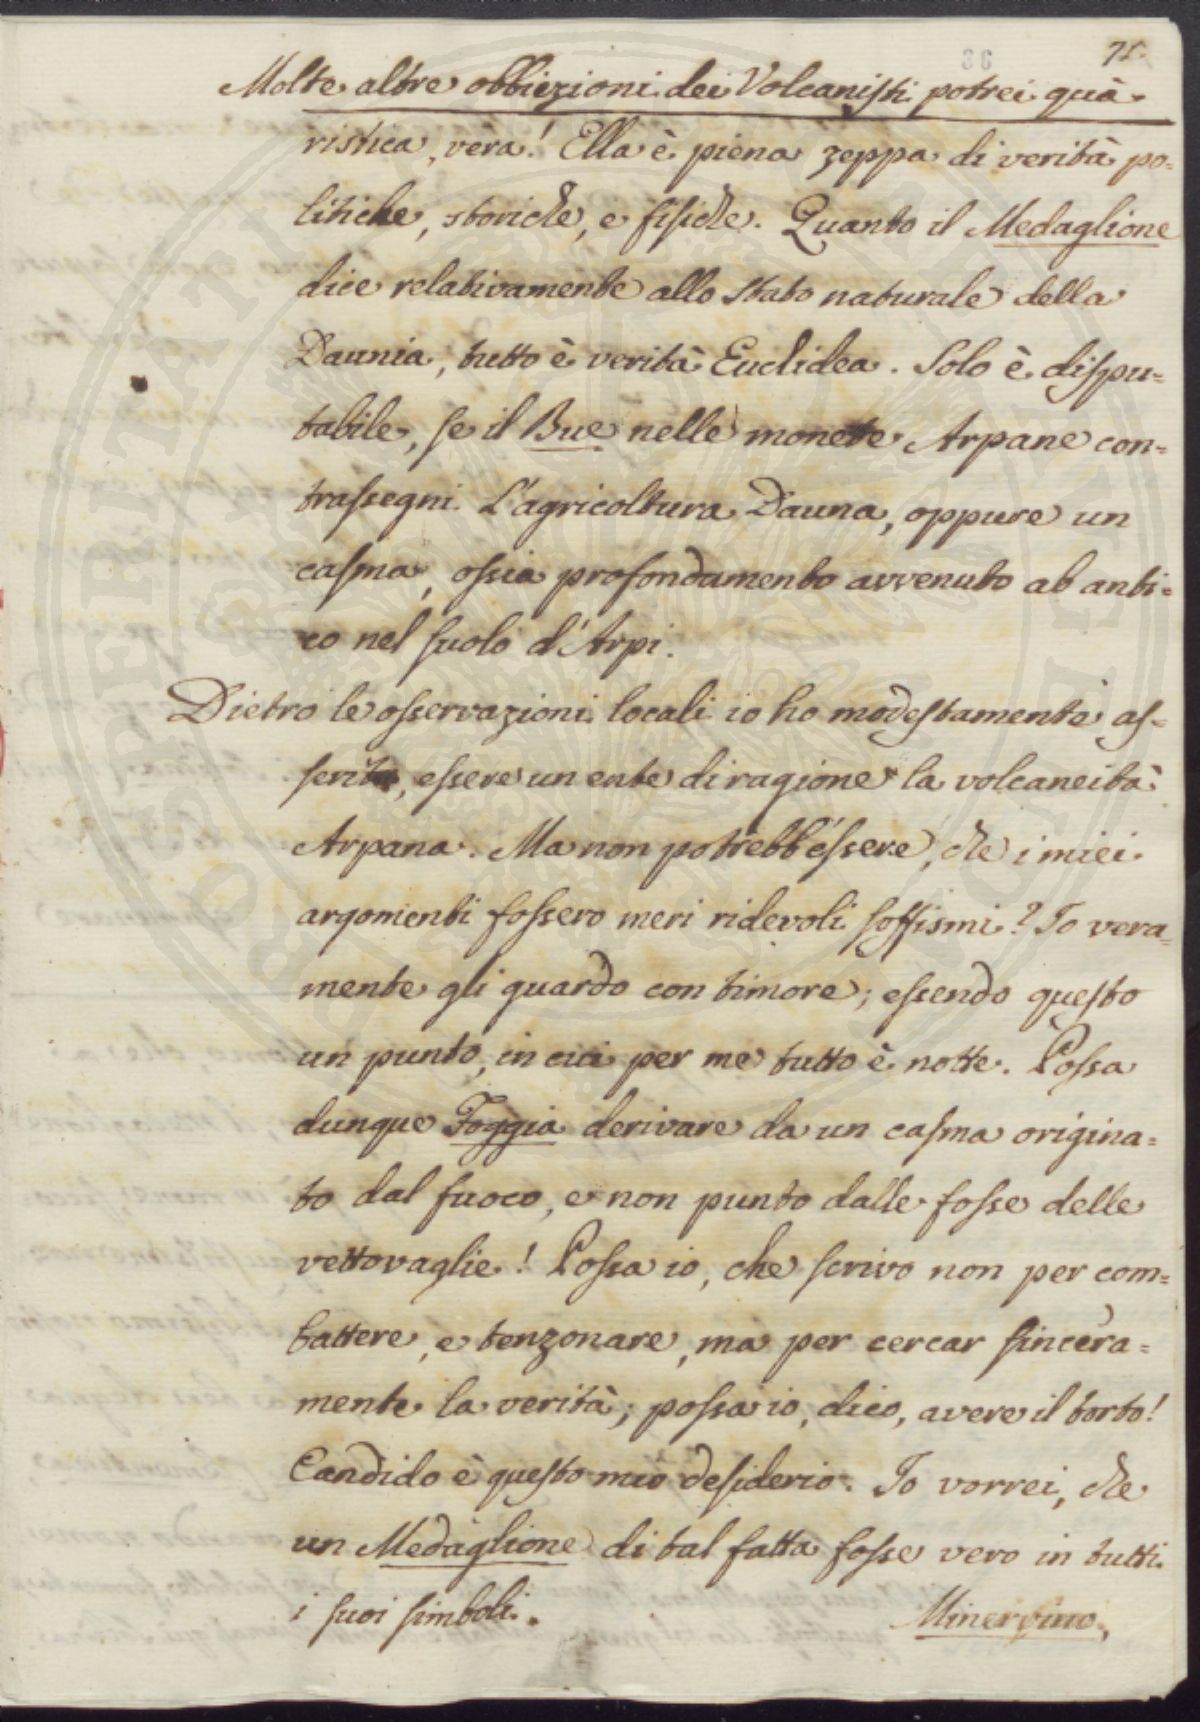 75.
Molte altre obbiezioni dei Volcanisti potrei quà
ristica, vera! Ella è piena zeppa di verità po=
litiche, storiche, e fisiche. Quanto il Medaglione
dice relativamente allo stato naturale della
Daunia, tutto è verità Euclidea. Solo è dispu=
tabile, se il Bue nelle monete Arpane con=
trassegni l'agricoltura Dauna, oppure un
casma, ossia profondamento avvenuto ab anti=
co nel suolo d'Arpi.
Dietro le osservazioni locali io ho modestamente as=
serito, essere un ente di ragione la volcaneità
Arpana. Ma non potrebb'éssere, che i miei
argomenti fossero meri ridevoli soffismi? Io vera=
mente gli guardo con timore; essendo questo
un punto, in cui per me tutto è notte. Possa
dunque Foggia derivare da un casma origina=
to dal fuoco, e non punto dalle fosse delle
vettovaglie! Possa io, che scrivo non per com=
battere, e tenzonare, ma per cercar sincera=
mente la verità; possa io, dico, avere il torto!
Candido è questo mio desiderio. Io vorrei, che
un Medaglione di tal fatta fosse vero in tutti
i suoi simboli.
Minervino,
PROSPERITATI